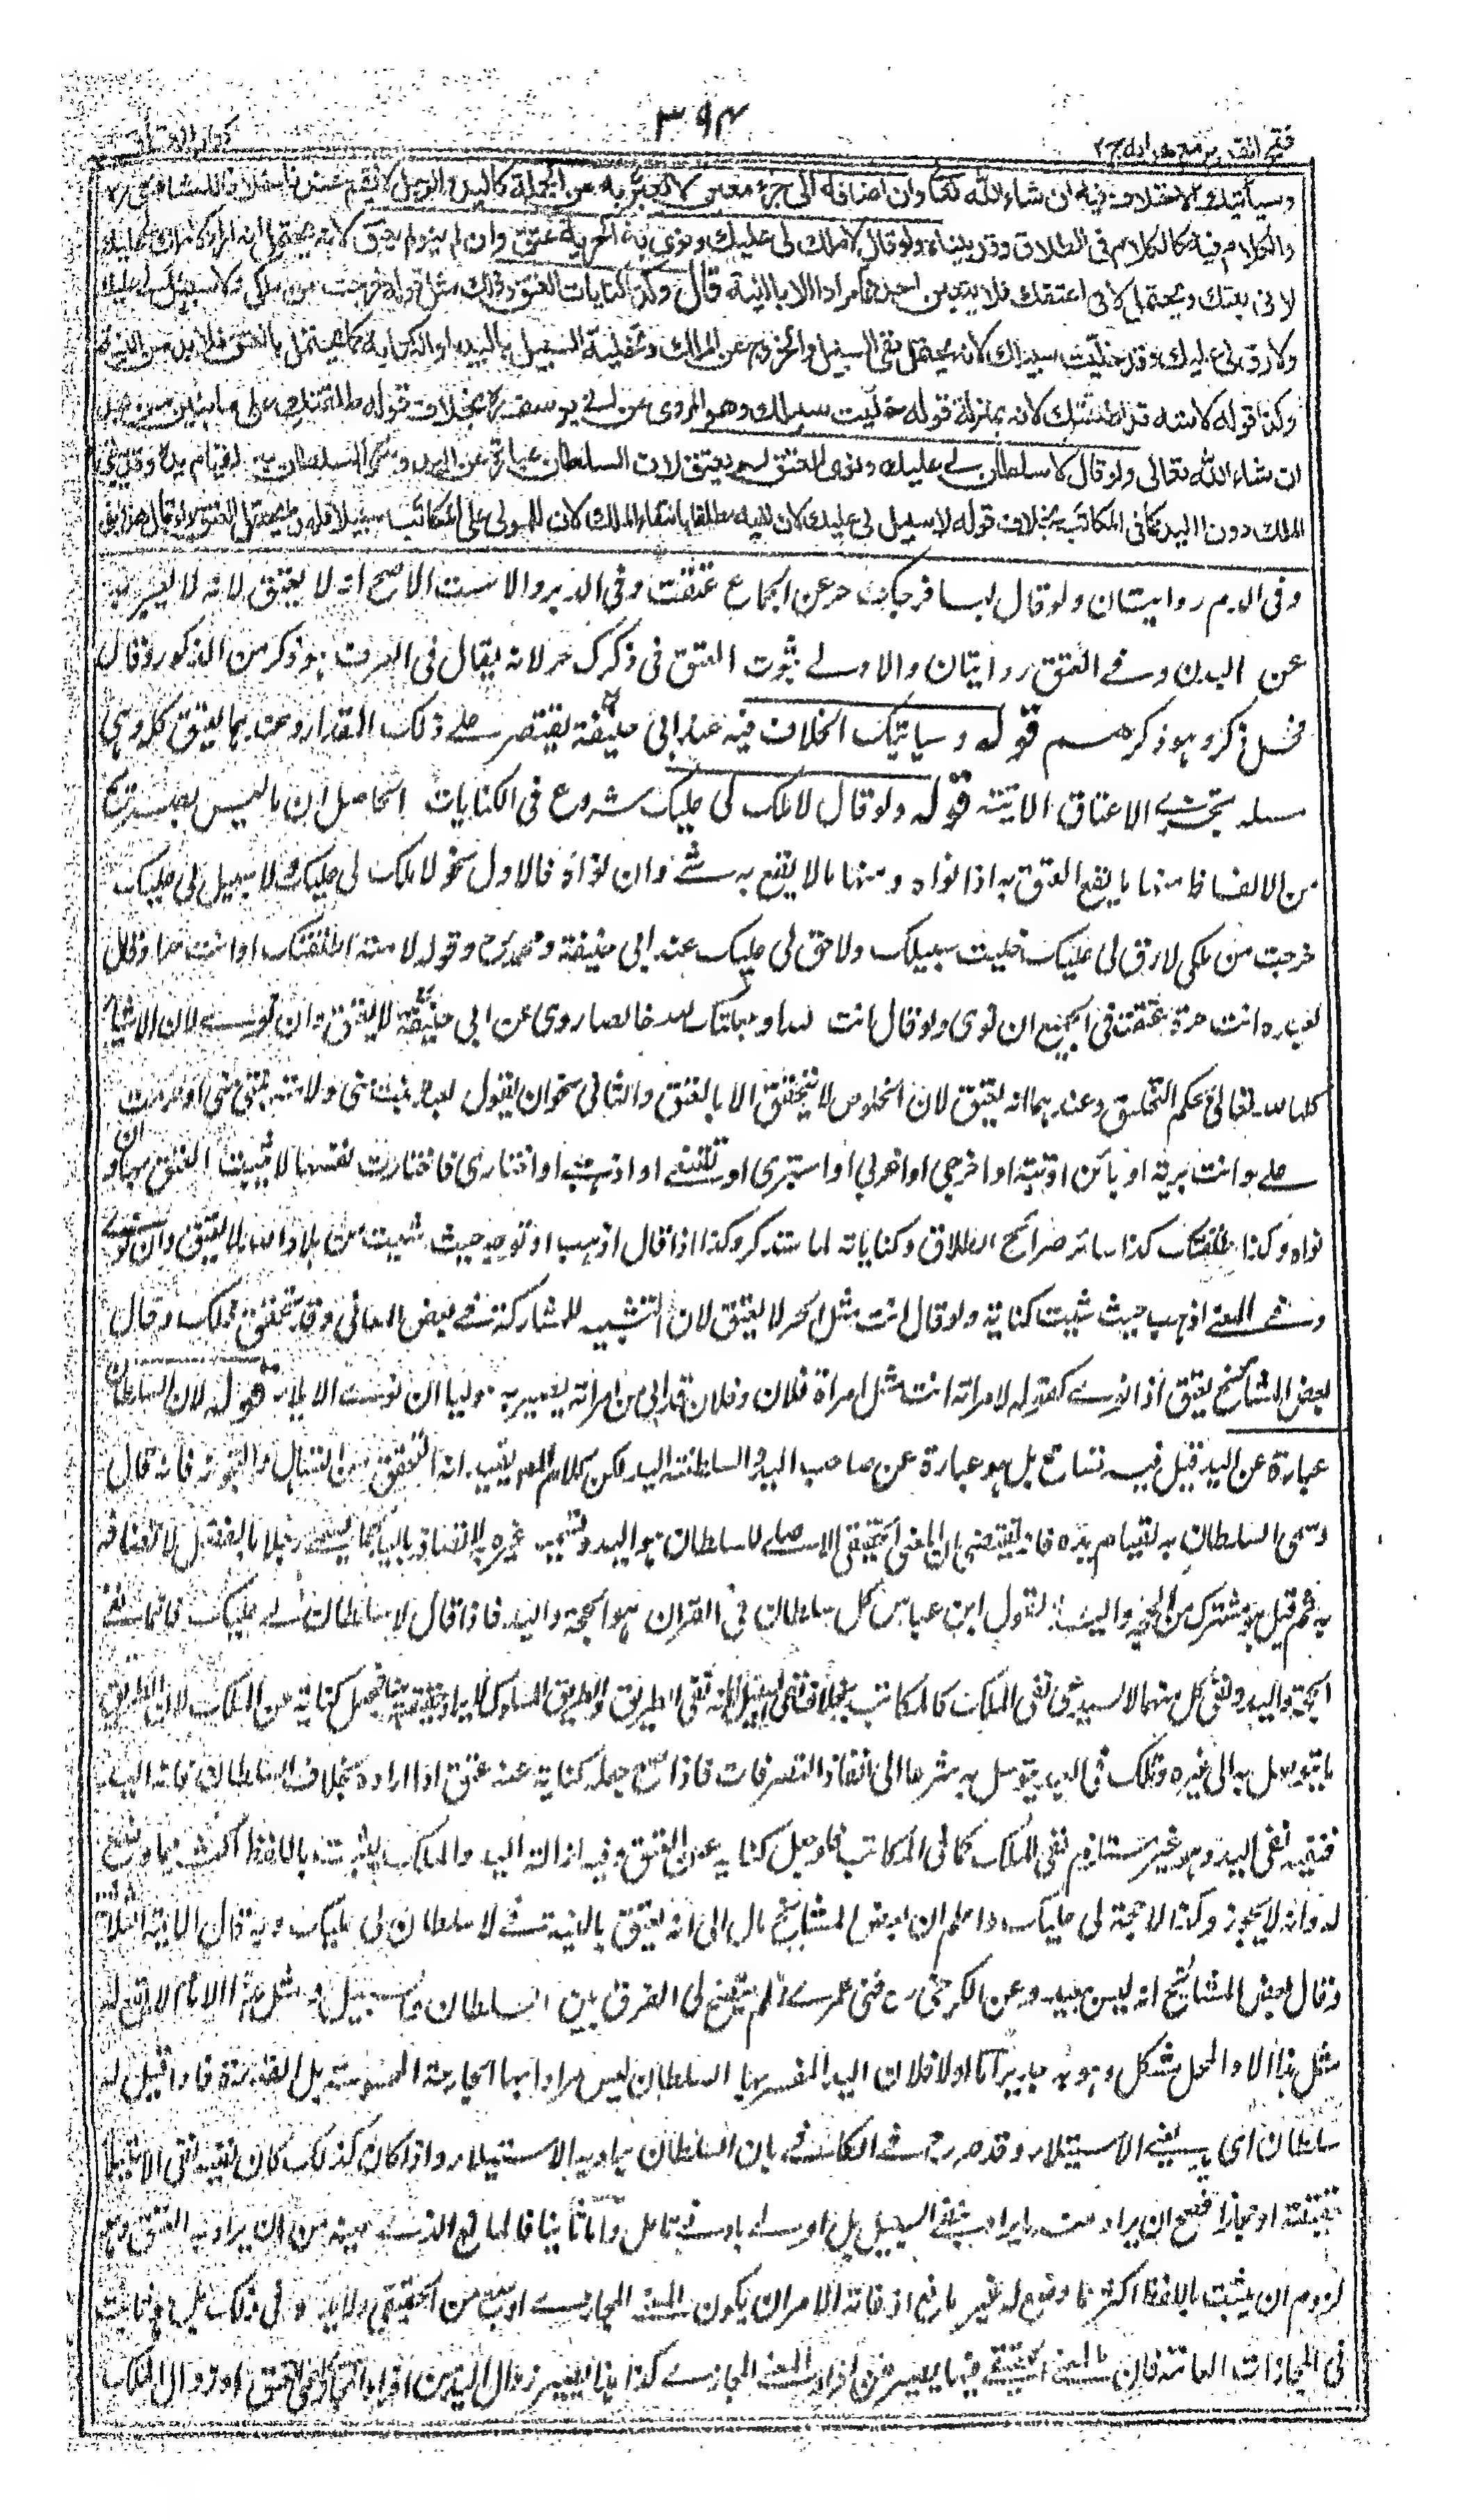 فتح القدير مع هدايه ج ٢
٣٩٤
كتاب العتاق
وسيأتيك الاختلاف فيه ان شاء الله تعالى وان اضافه الى جزء معين لا يعبر به عن الجملة كاليد والرجل لا يقع عندنا خلافا للشافعي رح
والكلام فيه كالكلام في الطلاق وقد بيناه ولو قال لا ملك لي عليك ونوى به الحرية عتق وان لم ينو لم يعتق لانه يحتمل انه اراد لا ملك لي عليك
لاني بعتك ويحتمل لاني اعتقتك فلا يتعين احدهما مرادا الا بالنية قال وكذا كنايات العتق وذلك مثل قوله خرجت من ملكي ولا سبيل لي عليك
ولا رق لي عليك وقد خليت سبيلك لانه يحتمل نفي السبيل والخروج عن الملك وتخلية السبيل بالبيع او الكتابة كما يحتمل بالعتق فلا بد من النية
وكذا قوله لامته قد اطلقتك لانه بمنزلة قوله خليت سبيلك وهو المروي عن ابي يوسف رح بخلاف قوله طلقتك على ما نبين من بعد
ان شاء الله تعالى ولو قال لا سلطان لي عليك ونوى العتق لم يعتق لان السلطان عبارة عن اليد وسمي السلطان به لقيام يده وقد يبقى
الملك دون اليد كما في المكاتب بخلاف قوله لا سبيل لي عليك لان نفيه مطلقا بانتفاء الملك لان للمولى على المكاتب سبيلا فلهذا يحتمل العتق ولو قال هذا ابني
وفي الدم روايتان ولو قال لها فرجك حر عن الجماع عتقت وفي الدبر والاست الاصح انه لا يعتق لانه لا يعبر به
عن البدن وفي العنق روايتان والاولى ثبوت العتق في ذكرك حر لانه يقال في العرف هو ذكر من الذكور وفلان
فحل ذكر وهو ذكرهم قوله وسياتيك الخلاف فيه عند ابي حنيفة يقتصر على ذلك المقدار وعندهما يعتق كله وهي
مسئلة تجزي الاعتاق الاتية قوله ولو قال لا ملك لي عليك شروع في الكنايات الحاصل ان ما ليس بصريح
من الالفاظ منها ما يقع العتق به اذا نواه ومنها ما لا يقع به شئ وان نواه فالاول نحو لا ملك لي عليك ولا سبيل لي عليك
خرجت من ملكي لا رق لي عليك خليت سبيلك ولا حق لي عليك عند ابي حنيفة ومحمد رح وقوله لامته اطلقتك او انت هذا وقال
لعبده انت حرة عتقت في الجميع ان نوى ولو قال انت لله او جعلتك لله خالصا روى عن ابي حنيفة لا يعتق وان نوى لان الاشياء
كلها لله تعالى بحكم التخليق وعندهما انه يعتق لان الخلوص لا يتحقق الا بالعتق والثاني نحو ان يقول لعبده بنت مني ولامته بنتي مني او حرمت
علي او انت برية او بائن او بتة او اخرجي او اغربي او استبري او تقنعي او اذهبي او اختاري فاختارت نفسها لا يثبت العتق بها وان
نواه وكذا طلقتك كذا سائر صرائح الطلاق وكناياته لما سنذكر وكذا اذا قال اذهب او توجه حيث شئت من بلاد الله لا يعتق وان نوى
وفي المغني اذهب حيث شئت كناية ولو قال انت مثل الحر لا يعتق لان التشبيه للمشاركة في بعض المعاني وقد تحقق ذلك وقال
بعض المشائخ يعتق اذا نوى كقوله لامراته انت مثل امراة فلان وفلان قد الى من امراته يصير به موليا ان نوى الايلاء قوله لان السلطان
عبارة عن اليد قيل فيه تسامح بل هو عبارة عن صاحب اليد والسلطنة اليد لكن كلام المصنف يفيد انه التحقق من استعمال التجوز فانه قال
وسمي السلطان به لقيام يده فانه يقتضي ان المعنى الحقيقي الاصلي للسلطان هو اليد وتسمية غيره به لاتصافه باليد كما يسمى رجلا بالفضل لاتصافه
به ثم قيل هو مشترك من الحجة واليد لقول ابن عباس كل سلطان في القران هو الحجة واليد فاذا قال لا سلطان لي عليك فانما نفى
الحجة واليد ونفي كل منهما لا يستدعي نفي الملك كالمكاتب بخلاف نفي السبيل لانه نفي الطريق والطريق المسلوك لا يراد حقيقة فجعل كناية عن الملك لان الطريق
ما يتوصل به الى غيره والملك في العبد يتوصل به شرعا الى انفاذ التصرفات فاذا صح جعله كناية عنه عتق اذا اراده بخلاف السلطان فانه اليد
فنفيه نفي اليد وهو غير مستلزم نفي الملك كما في المكاتب فلو جعل كناية عن العتق وفيه ازالة اليد والملك يثبت باللفظ اكثر مما وضع
له وانه لا يجوز وكذا لا حجة لي عليك واعلم ان بعض المشائخ مال الى انه يعتق بالنية في لا سلطان لي عليك وبه قال الائمة الثلاثة
وقال بعض المشائخ انه ليس ببعيد وعن الكرخي رح فني عمري ولم يتضح لي الفرق بين السلطان والسبيل ومثل هذا الامام لا يقع له
مثل هذا الا والمحل مشكل وهو به جدير اما اولا فلان اليد المفسر بها السلطان ليس مرادا بها الجارحة المحسوسة بل القدرة فاذا قيل له
سلطان اي يد يعني الاستيلاء وقد صرح في الكافي بان السلطان يراد به الاستيلاء واذا كان كذلك كان نفيه نفي الاستيلاء
حقيقة او مجازا فصح ان يراد منه ما يراد بنفي السبيل بل اولى بادنى تامل واما ثانيا فالمانع الذي عينه من ان يراد به العتق وهو
لزوم ان يثبت باللفظ اكثر مما وضع له غير مانع اذ غاية الامر ان يكون المعنى المجازي اوسع من الحقيقي ولا بدع في ذلك بل هو ثابت
في المجازات العامة فان المعنى الحقيقي فيها يصير من افراد المعنى المجازي كذا هذا يصير زوال اليد من افراد المجازي اعني العتق او زوال الملك